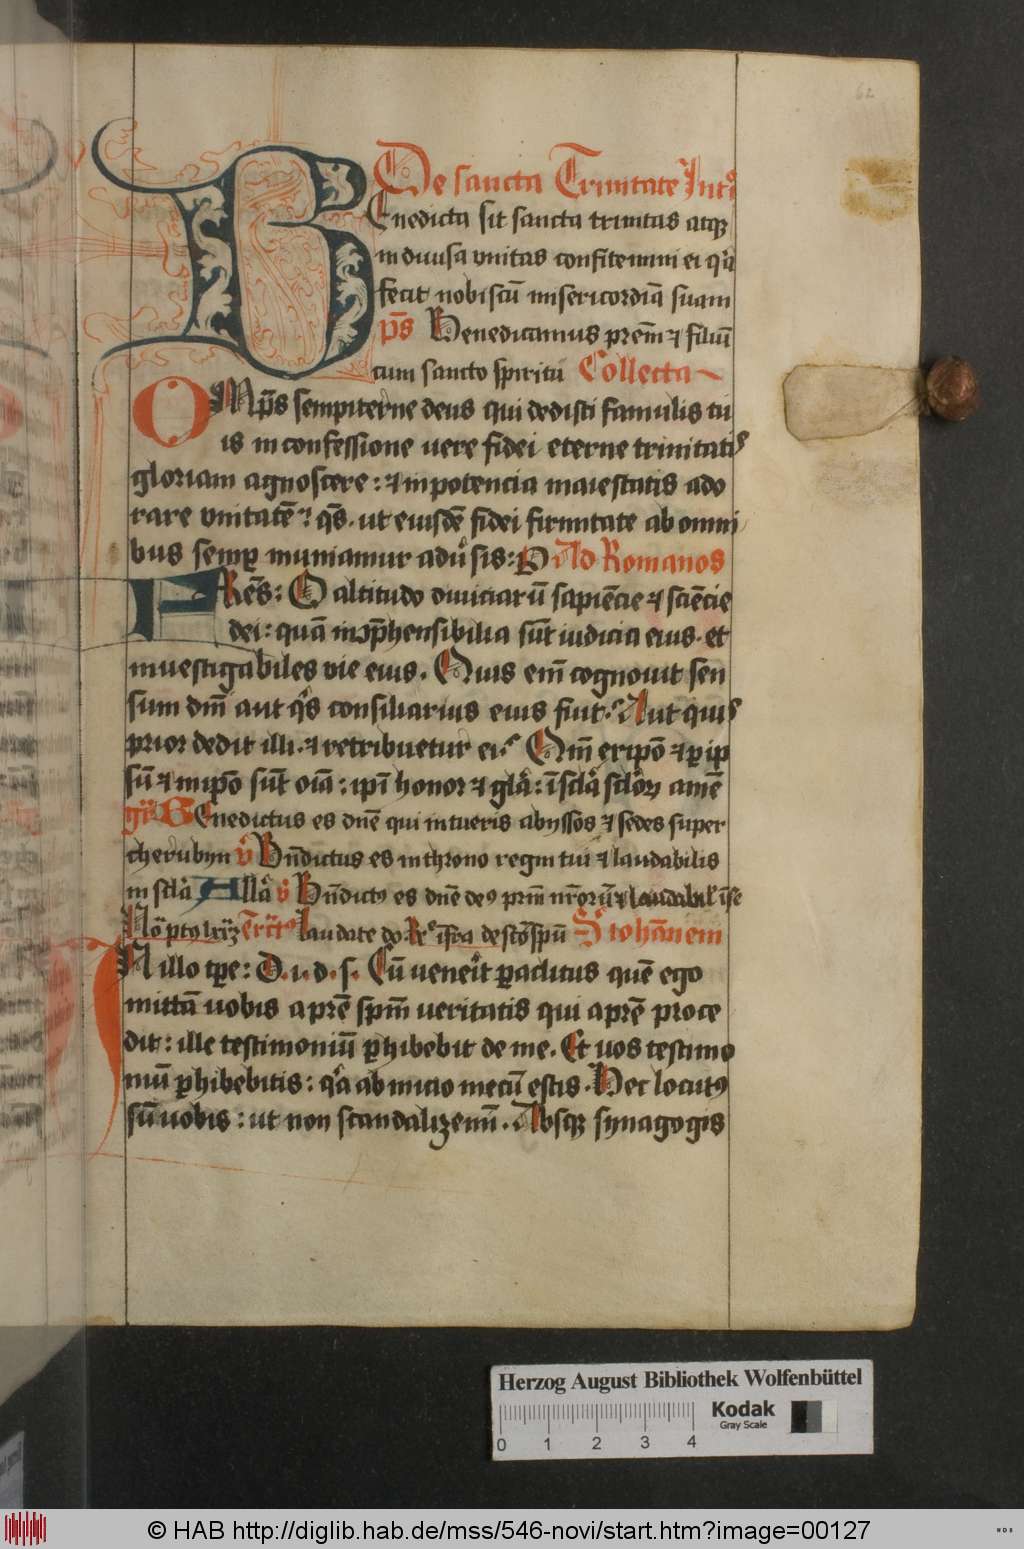 62
De sancta Trinitate Int᷒
BEnedicta sit sancta trinitas atqꝫ
indiuisa vnitas confitemini ei q̇a
fecit nobiscū misericordiā suam
p̄s Benedicamus prem̄ ⁊ filiū
cum sancto spiritu Collecta
OMp̄s sempiterne deus qui dedisti famulis tu
is in confessione uere fidei eterne trinitatis
gloriam agnoscere : ⁊ in potencia maiestatis ado
rare vnitatē : q̄s . ut eiusdē fidei firmitate ab omni
bus semꝑ muniamur adu᷒sis : P Ad Romanos
FRēs : O altitudo diuiciarū sapiēcie ⁊ sciēcie
dei : quā incōp̄hensibilia sūt iudicia eius . et
inuestigabiles vie eius . Quis em̄ cognouit sen
sum dn̄i aut q̇s consiliarius eius fuit . Aut quis
prior dedit illi . ⁊ retribuetur ei . Qm̄ ex ip̄o ⁊ ꝑ ip
sū ⁊ in ip̄o sūt oīa : ip̄i honor ⁊ gl̄a : ī scl̄a scl̄oꝝ amē
Gͣ BEnedictus es dn̄e qui intueris abyssos ⁊ sedes super
cherubyn v̊ Bn̄dictus es in throno regni tui ⁊ laudabilis
in scl̄a All̄a v̊ Bn̄dictꝰ es dn̄e deꝰ prm̄ nr̄orū ⁊ laudabil᷒ ī sc̄
laudate do ī᷒fra de scō spū S᷒ Iohānem
IN illo tp̄e : D . i . d . s . Cū uenerit paraclitus quē ego
mittā uobis a prē spm̄ ueritatis qui a prē proce
dit : ille testimoniū ꝑhibebit de me . Et uos testimo
niū ꝑhibebitis : q̇a ab inicio mecū estis . Hec locutꝰ
sū uobis : ut non scandalizemī . Absqꝫ synagogis
Herzog August Bibliothek Wolfenbüttel
Kodak
Gray Scale
0 1 2 3 4
© HAB http://diglib.hab.de/mss/546-novi/start.htm?image=00127